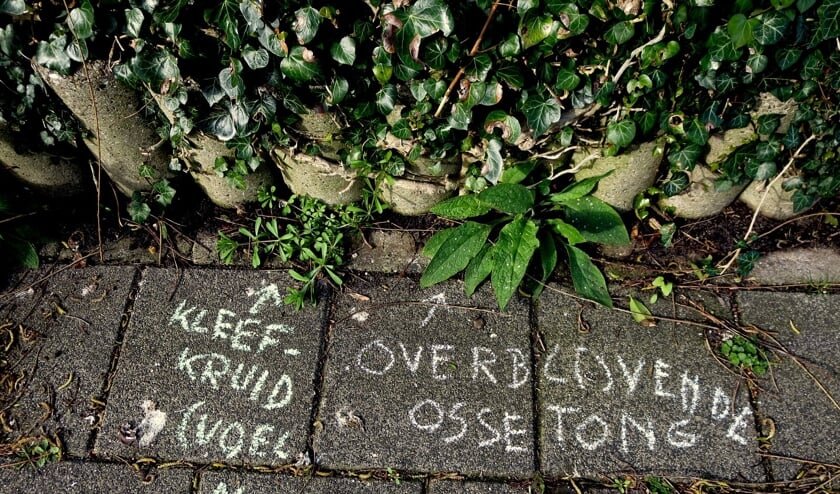 KLEEF-
KRUID
OVERBLIJVENDE
OSSETONG